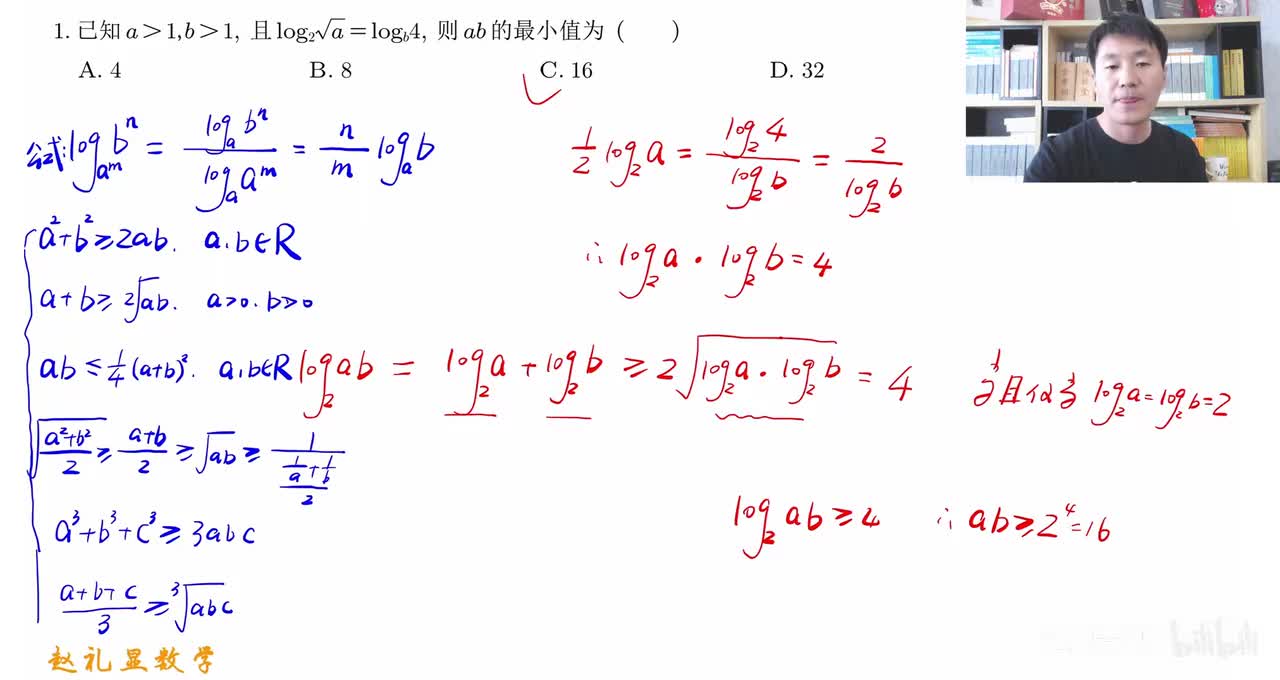 1. 已知 a > 1, b > 1, 且 log₂√a = log_b4, 则 ab 的最小值为 (      )
A. 4    B. 8    C. 16    D. 32
公式: log_{a^m} b^n = log_a b^n / log_a a^m = n/m log_a b
a²+b² ≥ 2ab. a,b∈R
a+b ≥ 2√ab. a>0. b>0
ab ≤ 1/4 (a+b)². a,b∈R
√((a²+b²)/2) ≥ (a+b)/2 ≥ √ab ≥ 1/((1/a+1/b)/2)
a³+b³+c³ ≥ 3abc
(a+b+c)/3 ≥ ³√abc
1/2 log₂a = log₂4 / log₂b = 2 / log₂b
∴ log₂a · log₂b = 4
log₂ab = log₂a + log₂b ≥ 2√(log₂a · log₂b) = 4    当且仅当 log₂a = log₂b = 2
log₂ab ≥ 4    ∴ ab ≥ 2⁴ = 16
赵礼显数学
bilibili